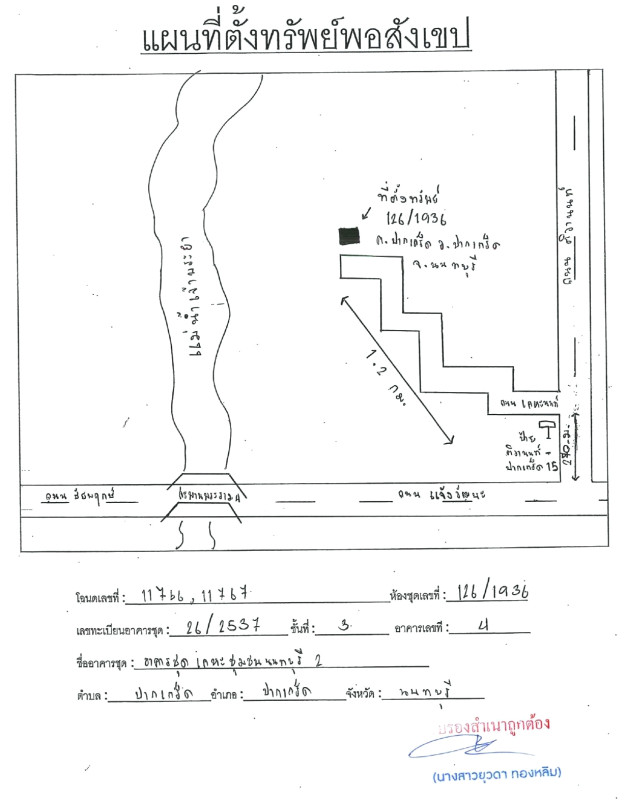 แผนที่ตั้งทรัพย์พอสังเขป
ที่ตั้งทรัพย์
126/1936
ต.ปากเกร็ด อ.ปากเกร็ด
จ.นนทบุรี
แม่น้ำเจ้าพระยา
ถนน ติวานนท์
1.2 กม.
ถนน เคหะนนท์
ป้าย
ติวานนท์ -
ปากเกร็ด 15
270 ม.
ถนน ชัยพฤกษ์
สะพานพระราม 4
ถนน แจ้งวัฒนะ
โฉนดเลขที่ : 11766 , 11767 ห้องชุดเลขที่ : 126/1936
เลขทะเบียนอาคารชุด : 26/2537 ชั้นที่ : 3 อาคารเลขที่ : 4
ชื่ออาคารชุด : อาคารชุด เคหะชุมชนนนทบุรี 2
ตำบล : ปากเกร็ด อำเภอ : ปากเกร็ด จังหวัด : นนทบุรี
รับรองสำเนาถูกต้อง
(นางสาวยุวดา ทองหลิม)